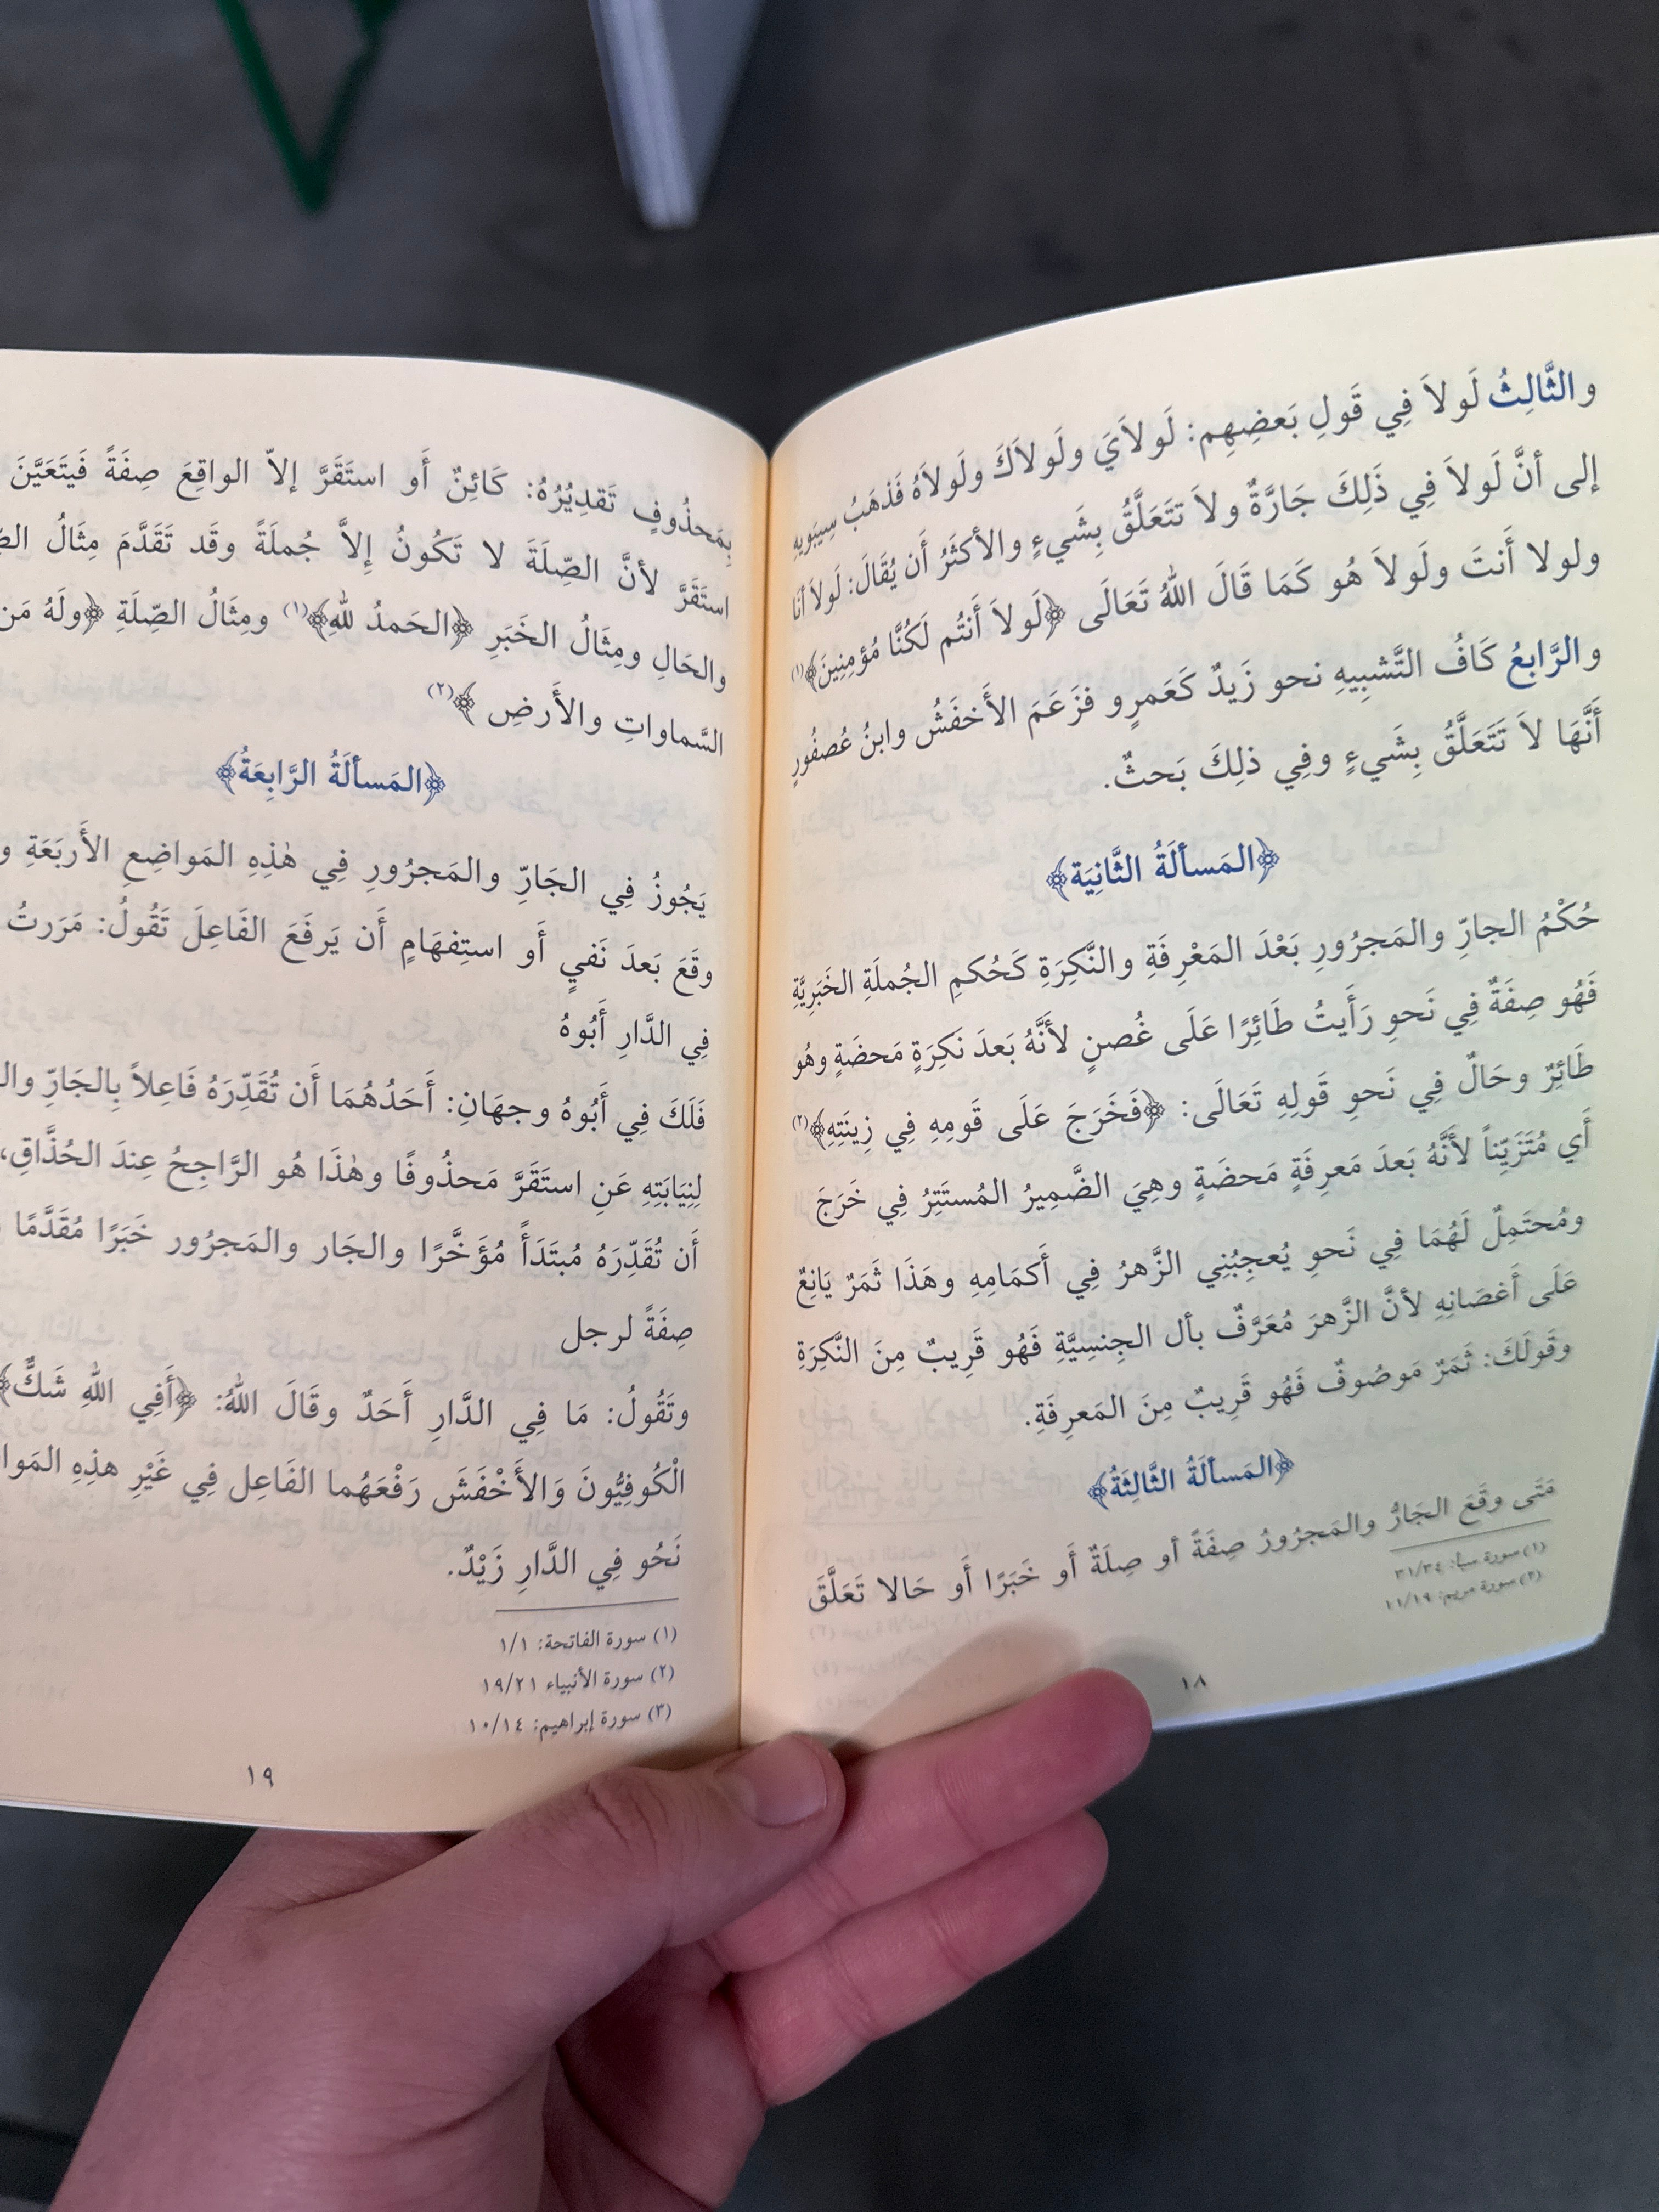 والثَّالِثُ لَولاَ فِي قَولِ بَعضِهِم: لَولاَيَ ولَولاَكَ ولَولاَهُ فَذهَبُ سِيبَويهِ
إلى أنَّ لَولاَ فِي ذَلِكَ جَارَّةٌ ولاَ تتَعَلَّقُ بِشَيءٍ والأكثَرُ أَن يُقَالَ: لَولاَ أَنَا
ولولا أَنتَ ولَولاَ هُو كَمَا قَالَ اللهُ تَعَالَى ﴿لَولاَ أَنتُم لَكُنَّا مُؤمِنِينَ﴾(١)
والرَّابعُ كَافُ التَّشبِيهِ نحو زَيدٌ كَعَمرٍو فزَعَمَ الأَخفَشُ وابنُ عُصفُورٍ
أَنَّهَا لاَ تَتَعَلَّقُ بِشَيءٍ وفِي ذلِكَ بَحثٌ.
﴿المَسألَةُ الثَّانِيَة﴾
حُكْمُ الجارِّ والمَجرُورِ بَعْدَ المَعْرِفَةِ والنَّكِرَةِ كَحُكمِ الجُملَةِ الخَبَرِيَّةِ
فَهُو صِفَةٌ فِي نَحوِ رَأَيتُ طَائِرًا عَلَى غُصنٍ لأَنَّهُ بَعدَ نَكِرَةٍ مَحضَةٍ وهُو
طَائِرٌ وحَالٌ فِي نَحوِ قَولِهِ تَعَالَى: ﴿فَخَرَجَ عَلَى قَومِهِ فِي زِينَتِهِ﴾(٢)
أَي مُتَزَيِّناً لأَنَّهُ بَعدَ مَعرِفَةٍ مَحضَةٍ وهِيَ الضَّمِيرُ المُستَتِرُ فِي خَرَجَ
ومُحتَمِلٌ لَهُمَا فِي نَحوِ يُعجِبُنِي الزَّهرُ فِي أَكمَامِهِ وهَذَا ثَمَرٌ يَانِعٌ
عَلَى أَغصَانِهِ لأنَّ الزَّهرَ مُعَرَّفٌ بأل الجِنسِيَّةِ فَهُو قَرِيبٌ مِنَ النَّكِرَةِ
وقَولَكَ: ثَمَرٌ مَوصُوفٌ فَهُو قَرِيبٌ مِنَ المَعرِفَةِ.
﴿المَسألَةُ الثَّالِثَةُ﴾
مَتَى وقَعَ الجَارُّ والمَجرُورُ صِفَةً أو صِلَةٌ أَو خَبَرًا أَو حَالا تَعَلَّقَ
(١) سورة سبأ: ٣١/٣٤
(٢) سورة مريم: ١١/١٩
١٨
بِمَحذُوفٍ تَقدِيُرُهُ: كَائِنٌ أَو استَقَرَّ إلاّ الواقِعَ صِفَةً فَيتَعَيَّنَ
استَقَرَّ لأنَّ الصِّلَةَ لا تَكُونُ إِلاَّ جُملَةً وقَد تَقَدَّمَ مِثَالُ
والحَالِ ومِثَالُ الخَبَرِ ﴿الحَمدُ للهِ﴾(١) ومِثَالُ الصِّلَةِ ﴿ولَهُ مَن
السَّماواتِ والأَرضِ ﴾(٢)
﴿المَسألَةُ الرَّابِعَةُ﴾
يَجُوزُ فِي الجَارِّ والمَجرُورِ فِي هٰذِهِ المَواضِعِ الأَربَعَةِ
وقَعَ بَعدَ نَفيٍ أَو استِفهَامٍ أَن يَرفَعَ الفَاعِلَ تَقُولُ: مَرَرتُ
فِي الدَّارِ أَبُوهُ
فَلَكَ فِي أَبُوهُ وجهَانِ: أَحَدُهُمَا أَن تُقَدِّرَهُ فَاعِلاً بِالجَارِّ
لِنِيَابَتِهِ عَنِ استَقَرَّ مَحذُوفًا وهٰذَا هُو الرَّاجِحُ عِندَ الحُذَّاقِ،
أَن تُقَدِّرَهُ مُبتَدَأً مُؤَخَّرًا والجَار والمَجرُور خَبَرًا مُقَدَّمًا
صِفَةً لرجل
وتَقُولُ: مَا فِي الدَّارِ أَحَدٌ وقَالَ اللهُ: ﴿أَفِي اللهِ شَكٌّ﴾
الْكُوفِيُّونَ وَالأَخْفَشَ رَفْعَهُما الفَاعِل فِي غَيْرِ هذِهِ
نَحُو فِي الدَّارِ زَيْدٌ.
(١) سورة الفاتحة: ١/١
(٢) سورة الأنبياء ١٩/٢١
(٣) سورة إبراهيم: ١٠/١٤
١٩